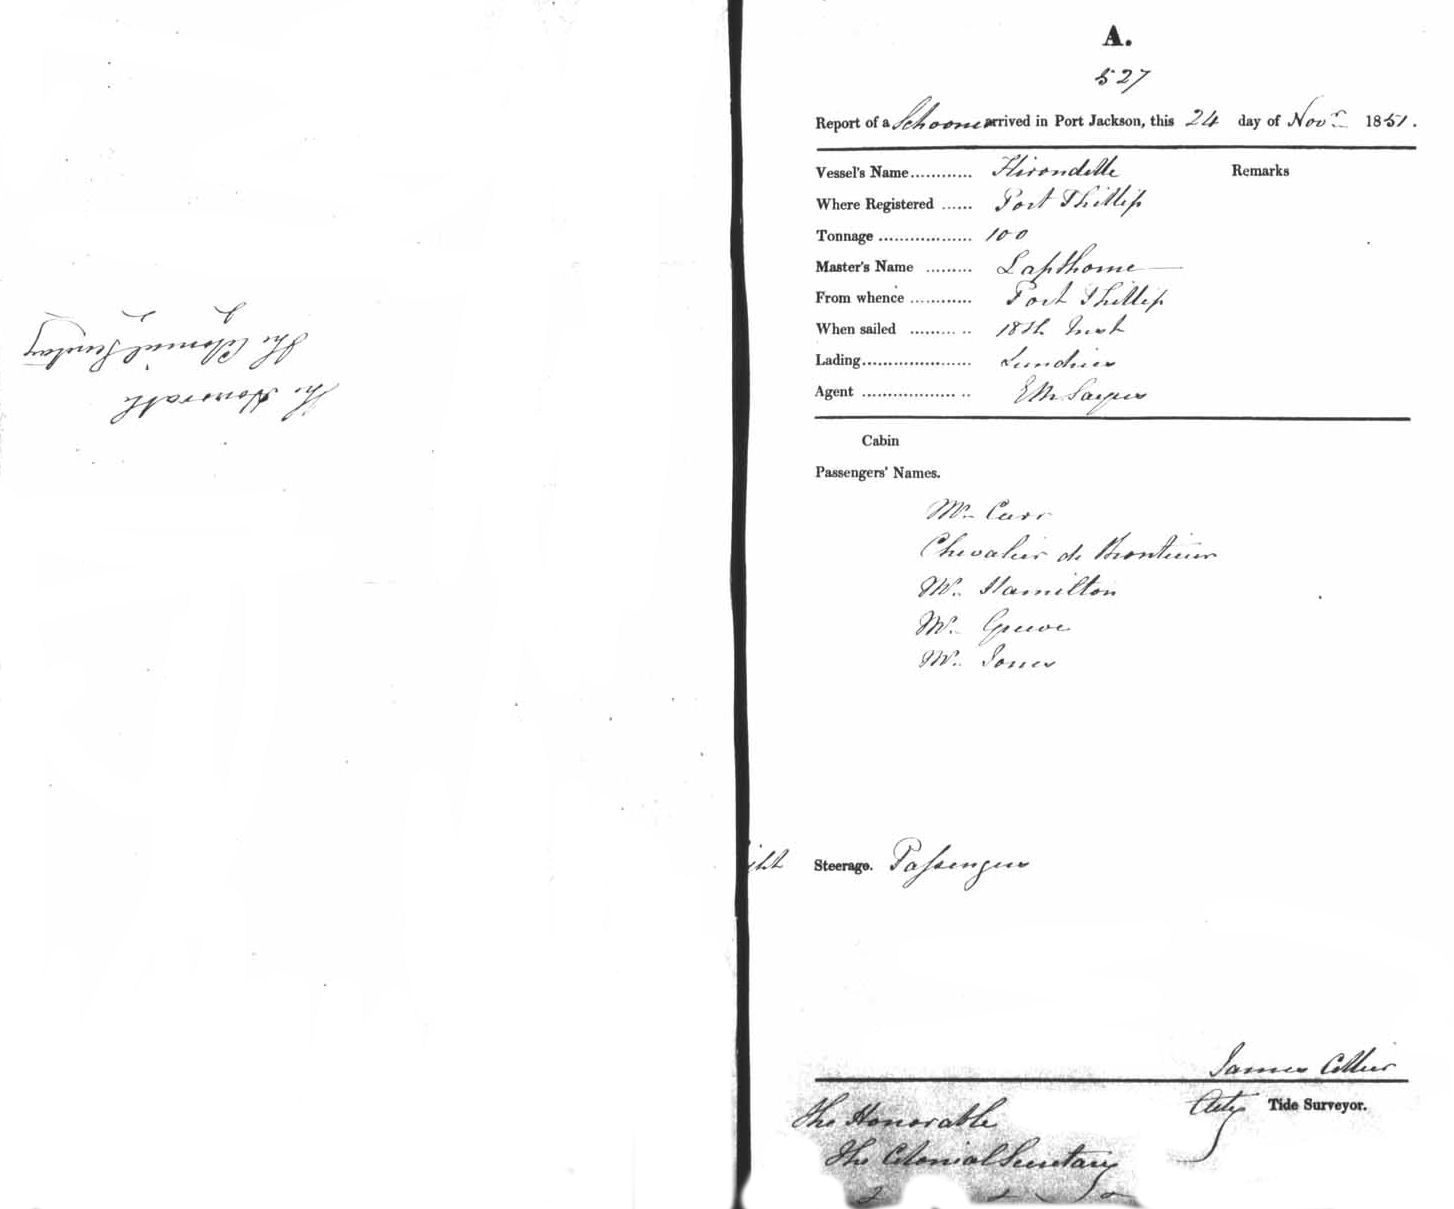 The Honorable
The Colonial Secretary
A.
527
Report of a Schooner arrived in Port Jackson, this 24 day of Novr 1851.
Vessel's Name............ Hirondelle Remarks
Where Registered ...... Port Phillip
Tonnage .................. 100
Master's Name ......... Lapthorne
From whence ............ Port Phillip
When sailed ......... .. 18th Inst
Lading..................... Sundries
Agent .................. .. E M Sayers
Cabin
Passengers' Names.
Mr. Carr
Chevalier de
Mr. Hamilton
Mr. Greeve
Mr. Jones
Steerage. Passengers
James Collier
Actg Tide Surveyor.
The Honorable
The Colonial Secretary